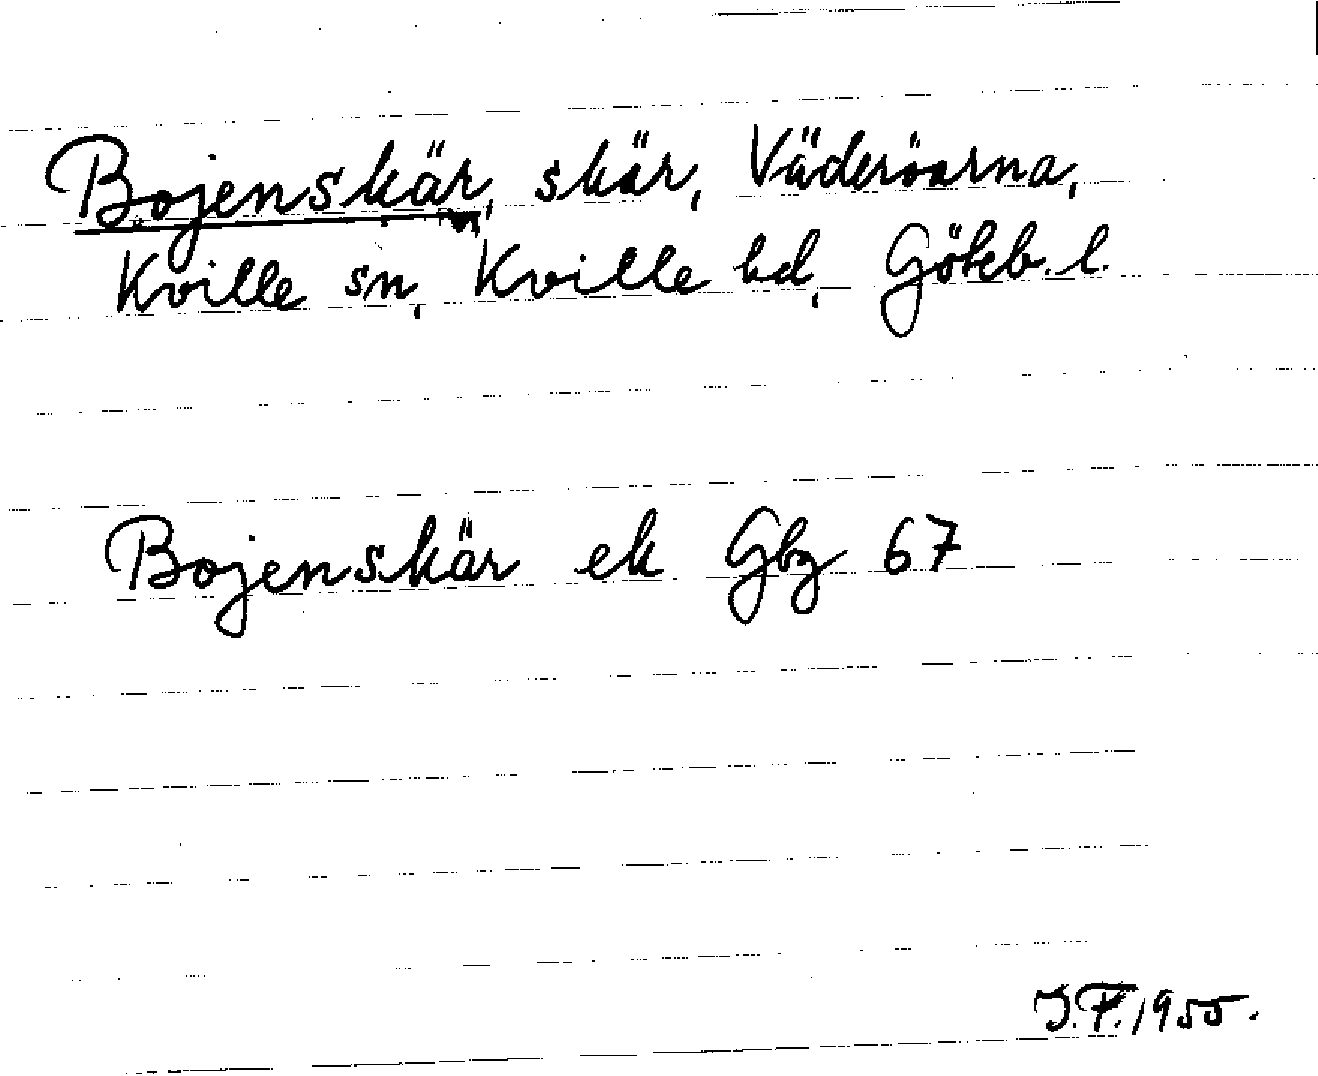 Bojenskär, skär, Väderöarna,
Kville sn, Kville hd, Göteb. l.
Bojenskär ek Gbg 67
J.F. 1955.